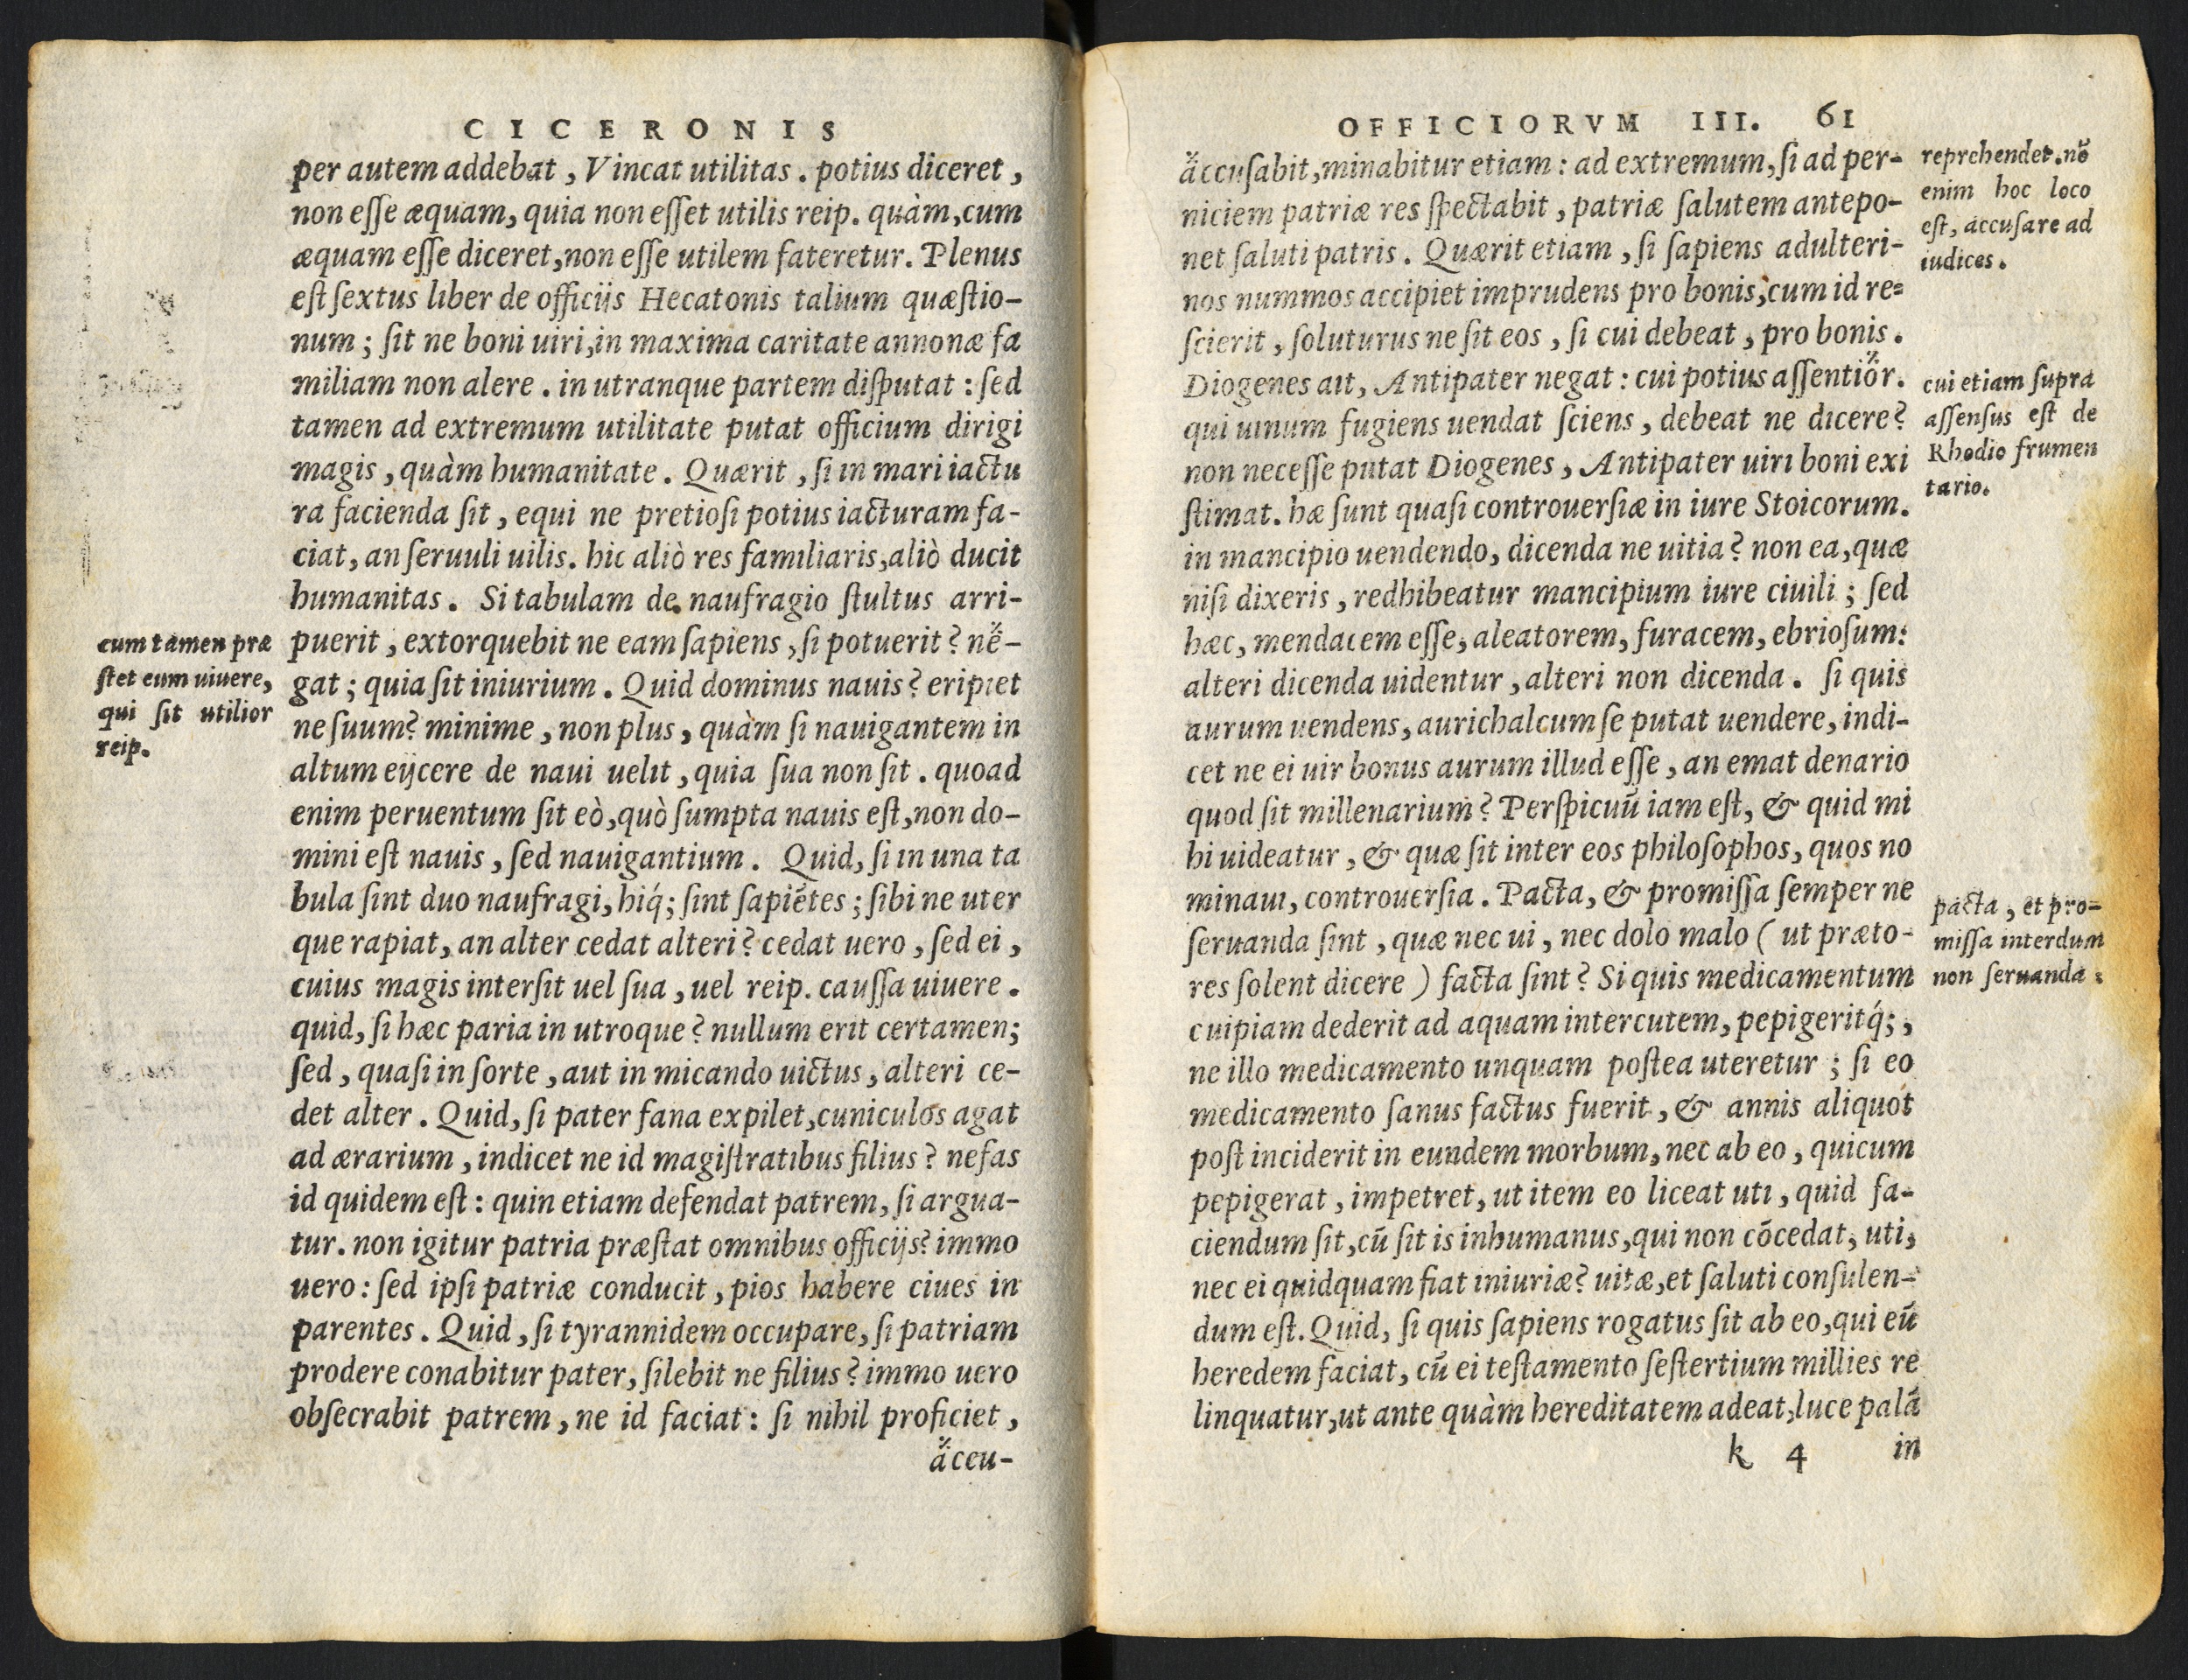 CICERONIS
per autem addebat, Vincat utilitas. potius diceret,
non eſſe æquam, quia non eſſet utilis reip. quàm, cum
æquam eſſe diceret, non eſſe utilem fateretur. Plenus
eſt ſextus liber de officijs Hecatonis talium quæſtio-
num; ſit ne boni uiri, in maxima caritate annonæ fa
miliam non alere. in utranque partem diſputat: ſed
tamen ad extremum utilitate putat officium dirigi
magis, quàm humanitate. Quærit, ſi in mari iactu
ra facienda ſit, equi ne pretioſi potius iacturam fa-
ciat, an ſeruuli uilis. hic aliò res familiaris, aliò ducit
humanitas. Si tabulam de naufragio ſtultus arri-
puerit, extorquebit ne eam ſapiens, ſi potuerit? ne̋-
gat; quia ſit iniurium. Quid dominus nauis? eripiet
ne ſuum? minime, non plus, quàm ſi nauigantem in
altum eijcere de naui uelit, quia ſua non ſit. quoad
enim peruentum ſit eò, quò ſumpta nauis eſt, non do-
mini eſt nauis, ſed nauigantium. Quid, ſi in una ta
bula ſint duo naufragi, hiq́; ſint ſapiẽtes; ſibi ne uter
que rapiat, an alter cedat alteri? cedat uero, ſed ei,
cuius magis interſit uel ſua, uel reip. cauſſa uiuere.
quid, ſi hæc paria in utroque? nullum erit certamen;
ſed, quaſi in ſorte, aut in micando uictus, alteri ce-
det alter. Quid, ſi pater fana expilet, cuniculos agat
ad ærarium, indicet ne id magiſtratibus filius? nefas
id quidem eſt: quin etiam defendat patrem, ſi argua-
tur. non igitur patria præſtat omnibus officijs? immo
uero: ſed ipſi patriæ conducit, pios habere ciues in
parentes. Quid, ſi tyrannidem occupare, ſi patriam
prodere conabitur pater, ſilebit ne filius? immo uero
obſecrabit patrem, ne id faciat: ſi nihil proficiet,
a̋ccu-
cum tamen præ
ſtet eum uiuere,
qui ſit utilior
reip.
OFFICIORVM III. 61
a̋ccuſabit, minabitur etiam: ad extremum, ſi ad per-
niciem patriæ res ſpectabit, patriæ ſalutem antepo-
net ſaluti patris. Quærit etiam, ſi ſapiens adulteri-
nos nummos accipiet imprudens pro bonis, cum id re-
ſcierit, ſoluturus ne ſit eos, ſi cui debeat, pro bonis.
Diogenes ait, Antipater negat: cui potius aſſentiőr.
qui uinum fugiens uendat ſciens, debeat ne dicere?
non neceſſe putat Diogenes, Antipater uiri boni exi
ſtimat. hæ ſunt quaſi controuerſiæ in iure Stoicorum.
in mancipio uendendo, dicenda ne uitia? non ea, quæ
niſi dixeris, redhibeatur mancipium iure ciuili; ſed
hæc, mendacem eſſe, aleatorem, furacem, ebrioſum:
alteri dicenda uidentur, alteri non dicenda. ſi quis
aurum uendens, aurichalcum ſe putat uendere, indi-
cet ne ei uir bonus aurum illud eſſe, an emat denario
quod ſit millenarium? Perſpicuũ iam eſt, & quid mi
hi uideatur, & quæ ſit inter eos philoſophos, quos no
minaui, controuerſia. Pacta, & promiſſa ſemper ne
ſeruanda ſint, quæ nec ui, nec dolo malo (ut præto-
res ſolent dicere) facta ſint? Si quis medicamentum
cuipiam dederit ad aquam intercutem, pepigeritq́;,
ne illo medicamento unquam poſtea uteretur; ſi eo
medicamento ſanus factus fuerit, & annis aliquot
poſt inciderit in eundem morbum, nec ab eo, quicum
pepigerat, impetret, ut item eo liceat uti, quid fa-
ciendum ſit, cũ ſit is inhumanus, qui non cõcedat, uti,
nec ei quidquam fiat iniuriæ? uitæ, et ſaluti conſulen-
dum eſt. Quid, ſi quis ſapiens rogatus ſit ab eo, qui eũ
heredem faciat, cũ ei teſtamento ſeſtertium millies re
linquatur, ut ante quàm hereditatem adeat, luce palã
k 4 in
reprehendet. nõ
enim hoc loco
eſt, accuſare ad
iudices.
cui etiam ſupra
aſſenſus eſt de
Rhodio frumen
tario.
pacta, et pro-
miſſa interdum
non ſeruanda: